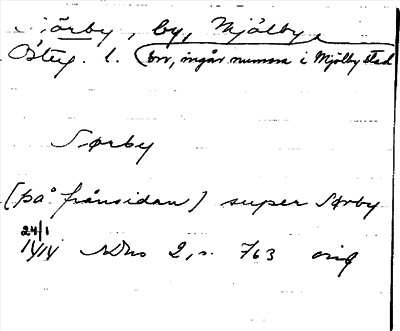 Sörby, by, Mjölby,
Österg. l. (nv, ingår numera i Mjölby stad
Sørby
[på frånsidan] super Sørby
24/1
1414 SDns 2, s. 763 orig